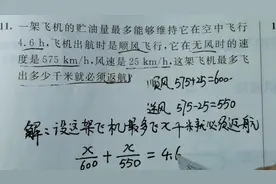 11. 一架飞机的贮油量最多能够维持它在空中飞行
4.6 h,飞机出航时是顺风飞行,它在无风时的速
度是 575 km/h,风速是 25 km/h,这架飞机最多飞
出多少千米就必须返航?
顺风 575+25=600
逆风 575-25=550
解:设这架飞机最多飞x千米就必须返航
x/600 + x/550 = 4.6